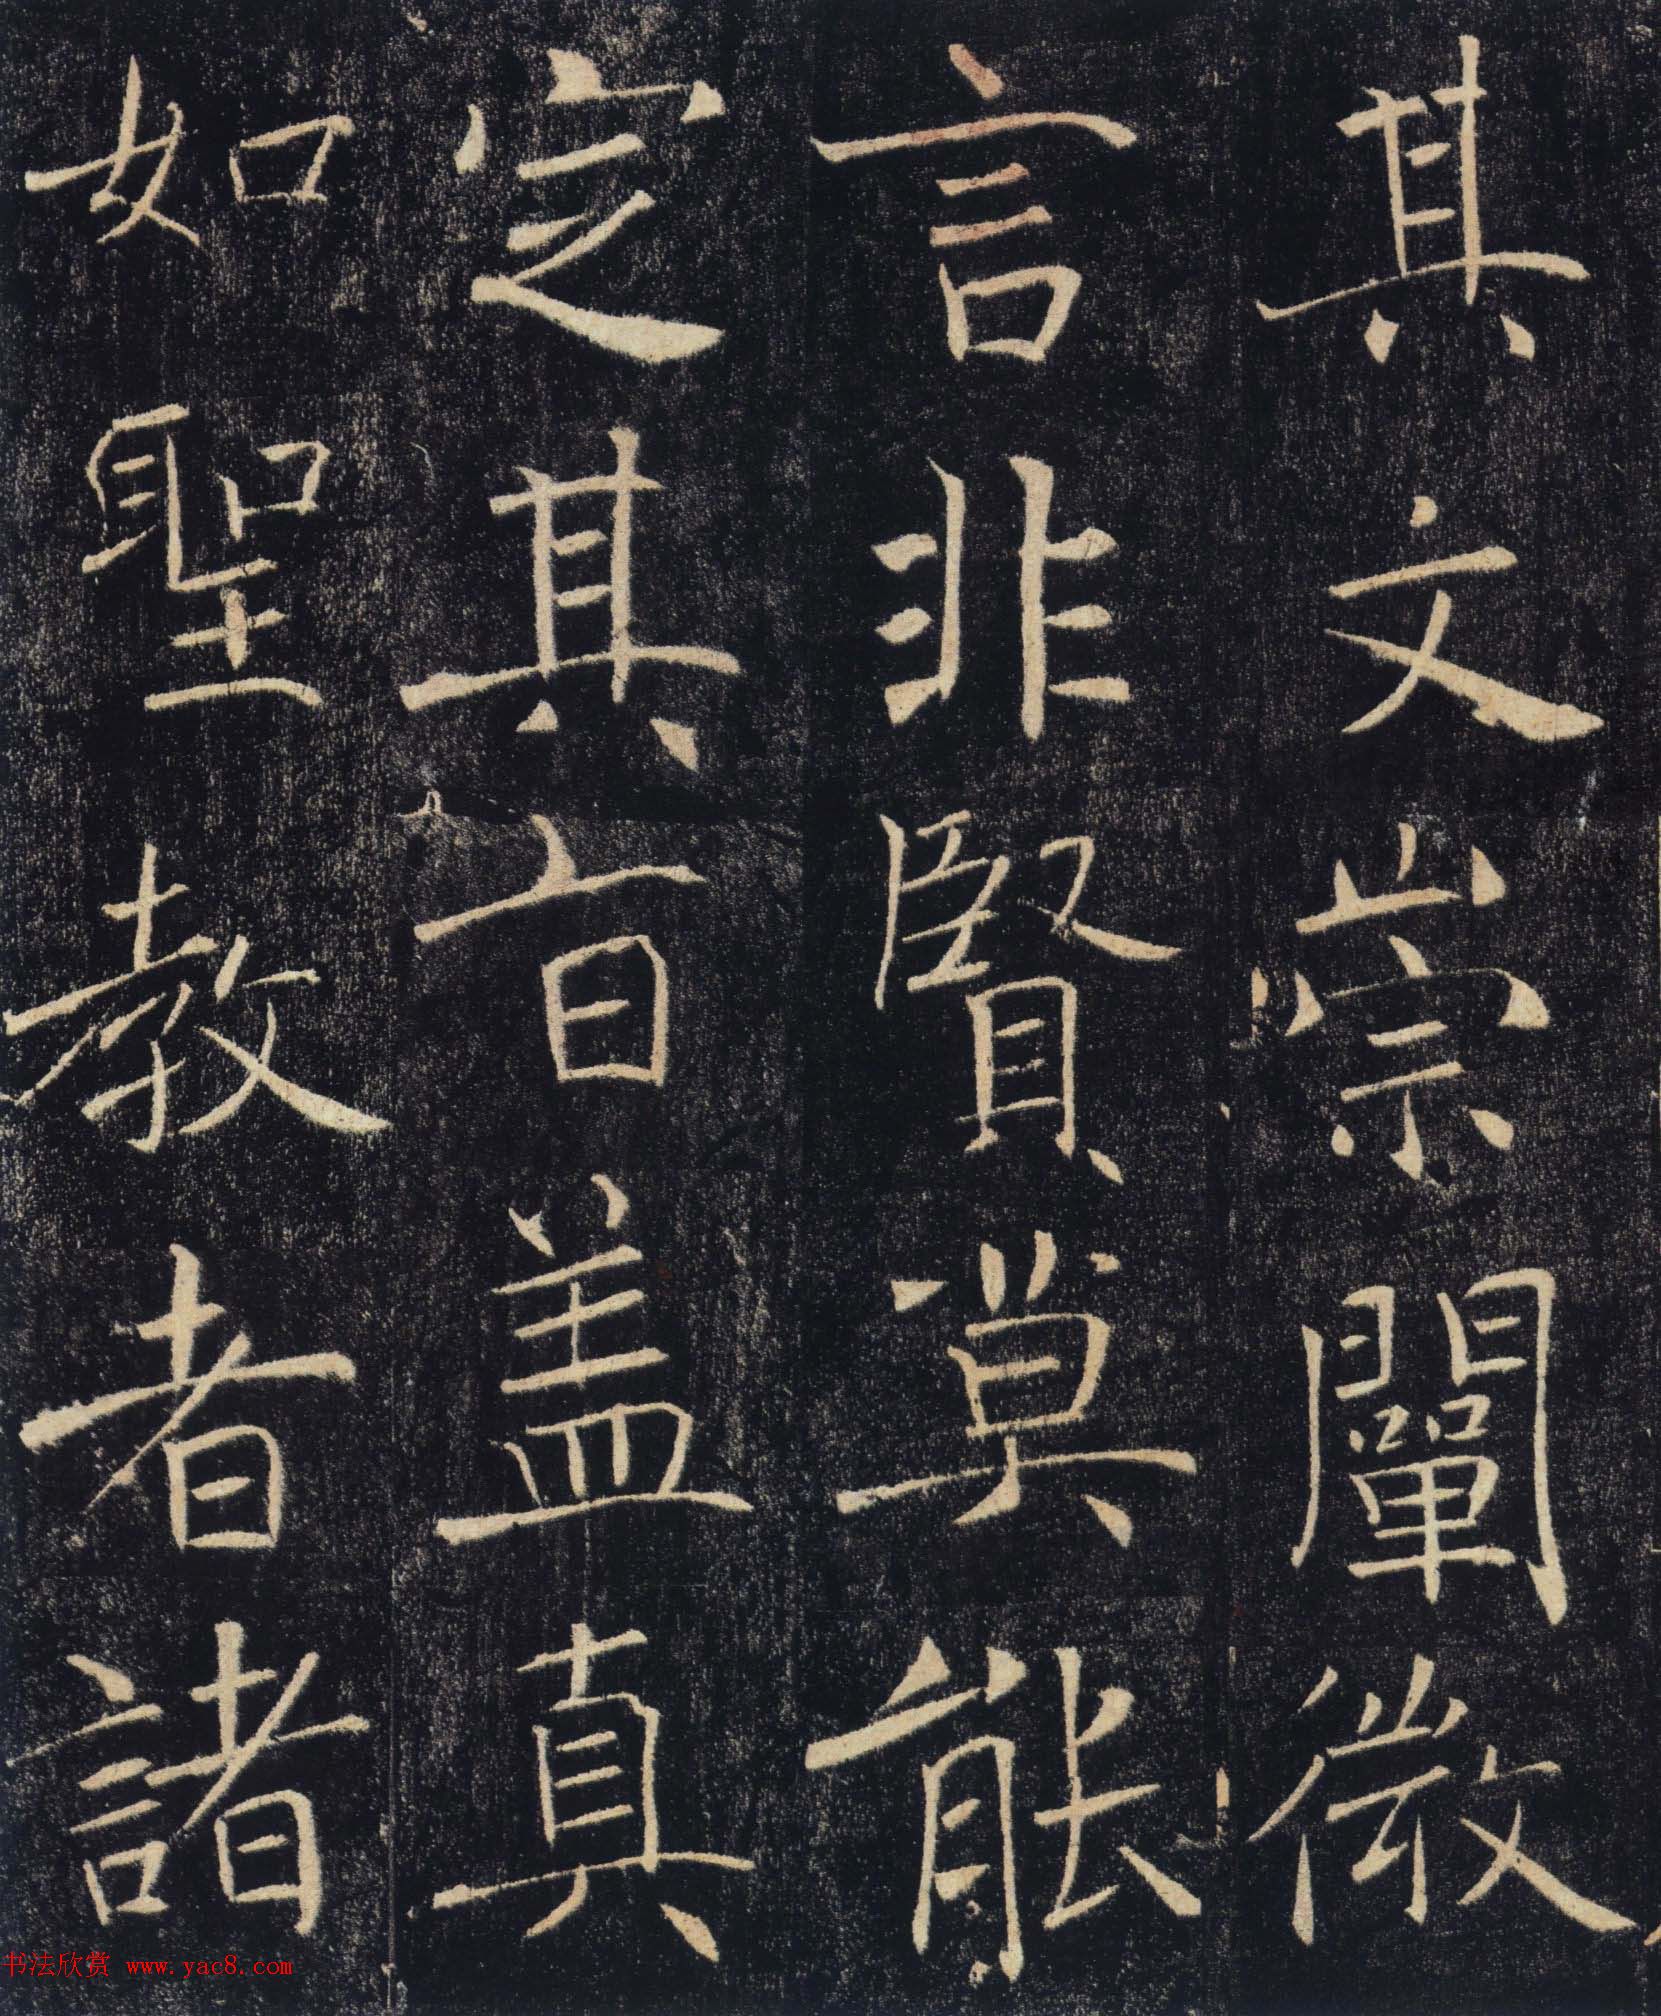 其文崇闡微
言非賢莫能
定其旨盖真
如聖教者諸
书法欣赏 www.yac8.com